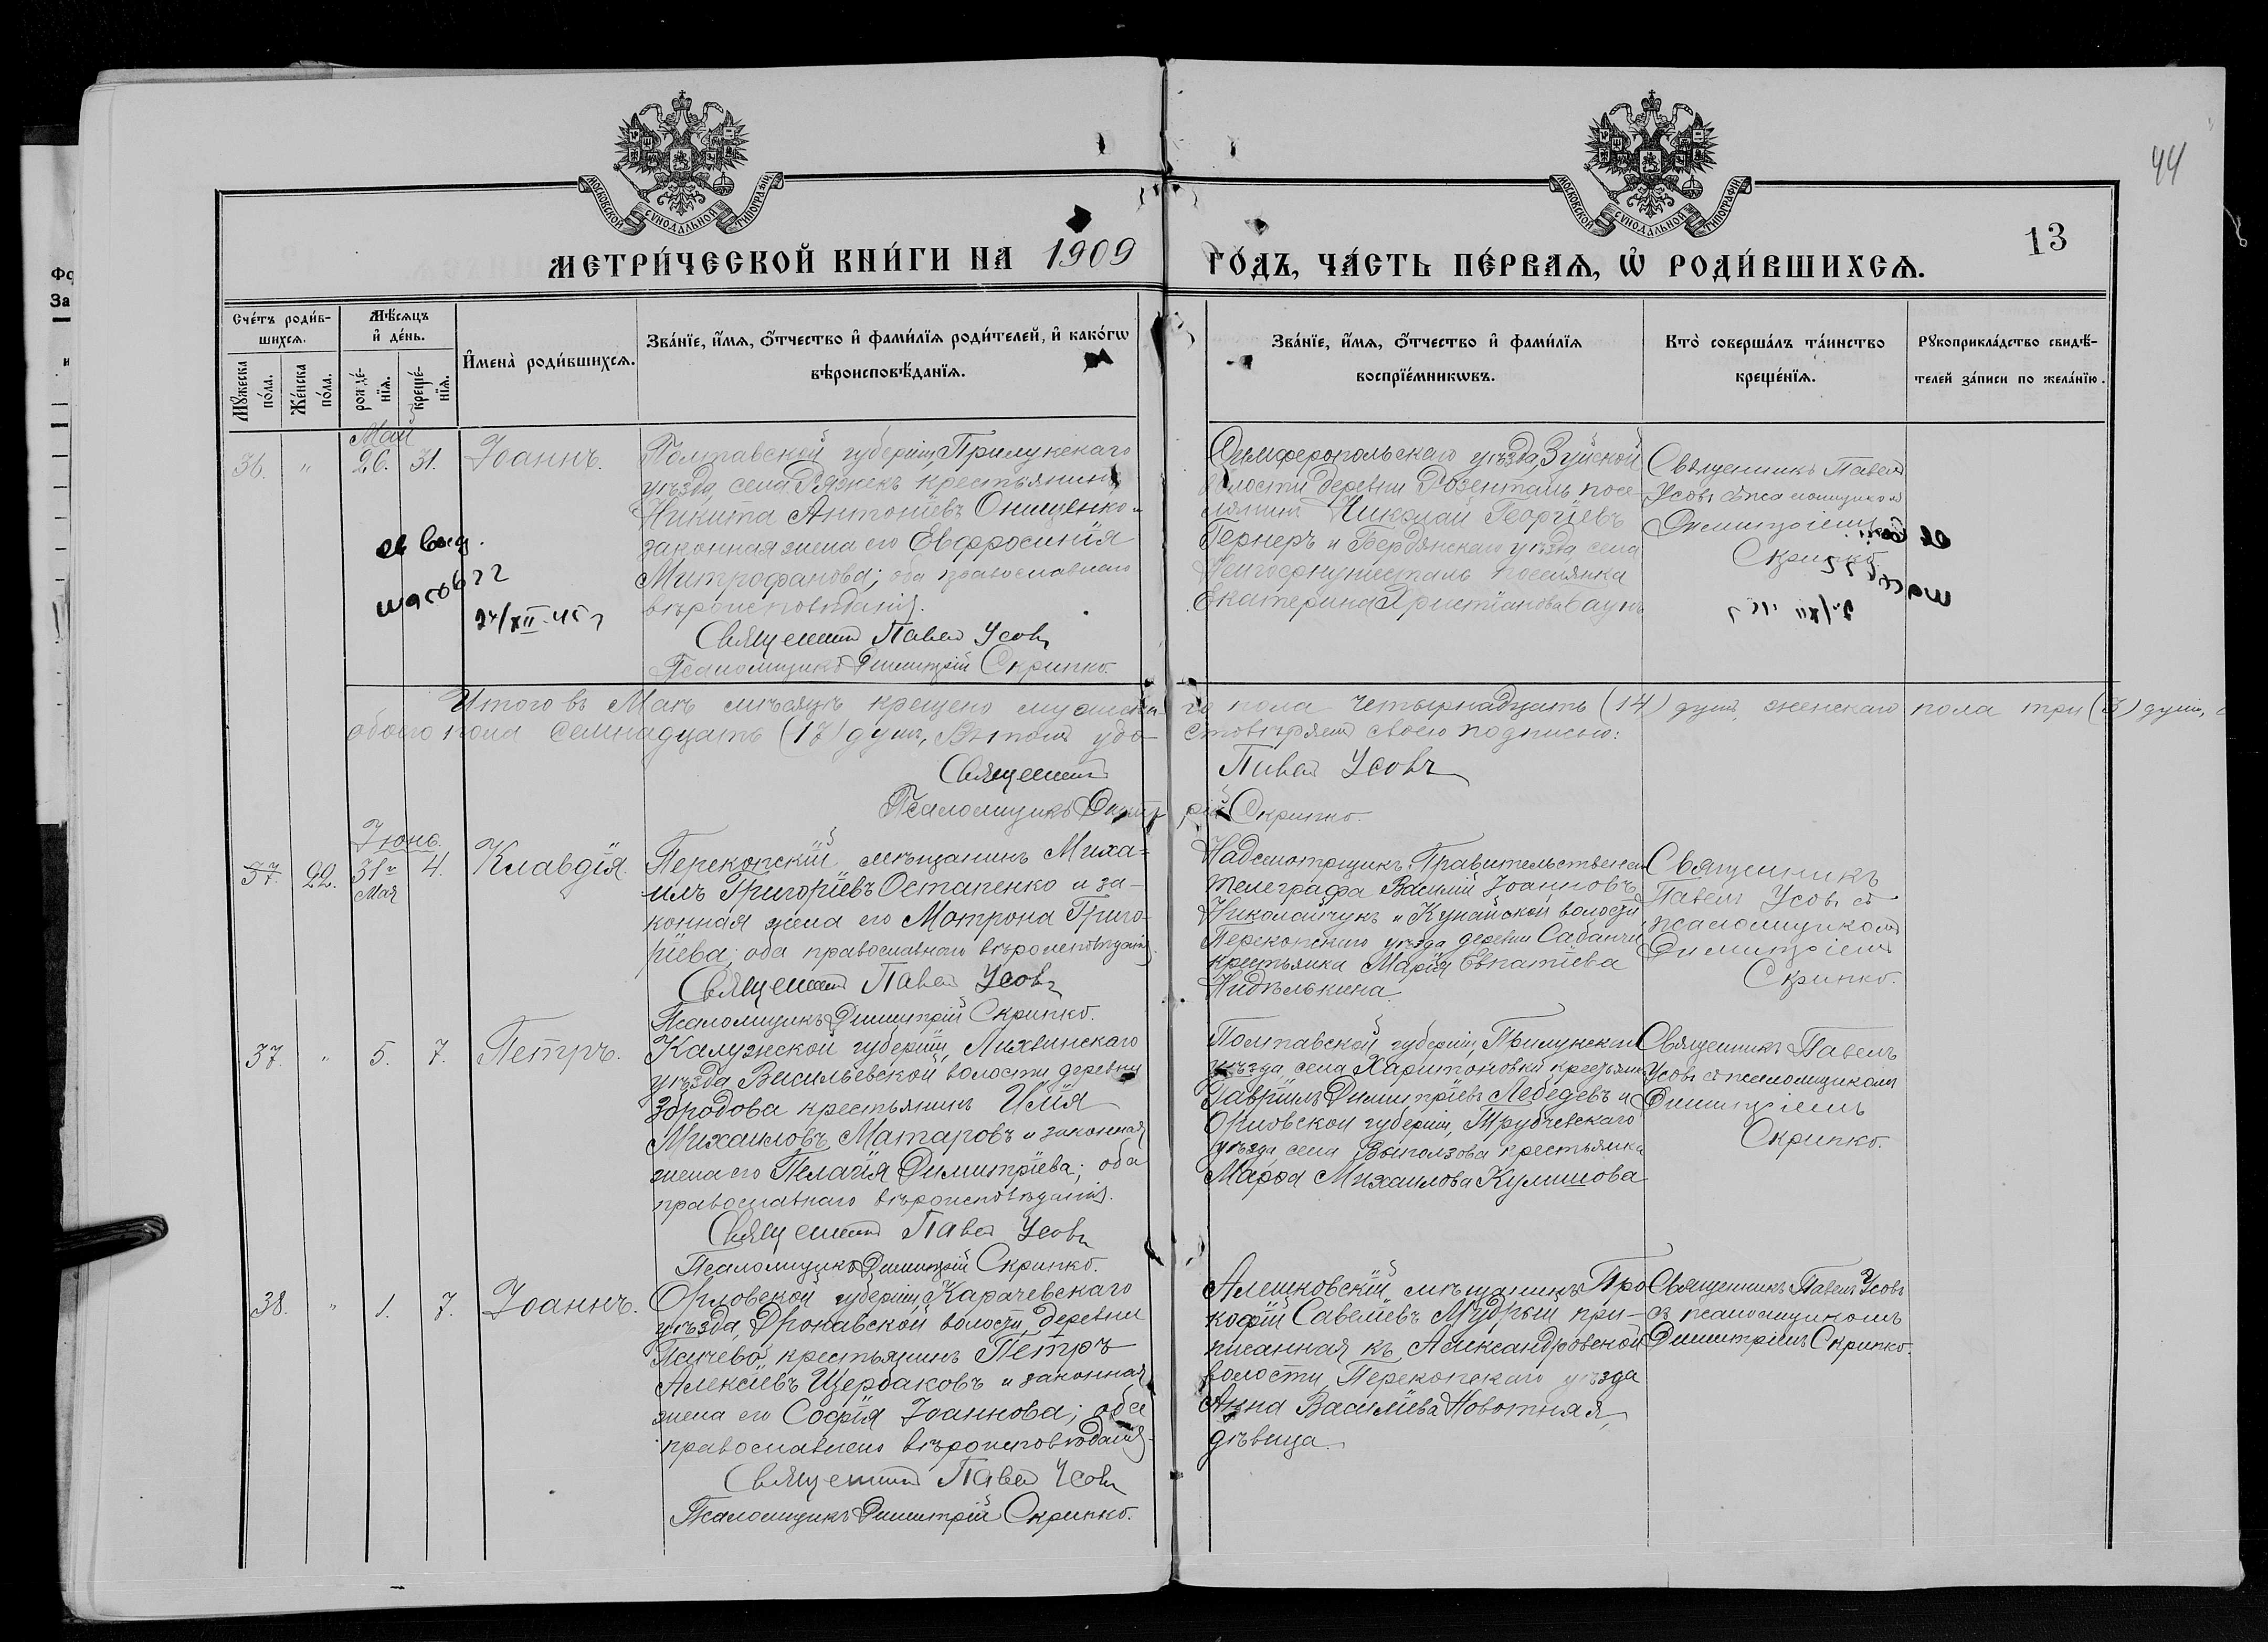 44
13
МОСКОВСКОЙ СѴНОДАЛЬНОЙ ТИПОГРАФІИ
МОСКОВСКОЙ СѴНОДАЛЬНОЙ ТИПОГРАФІИ
МЕТРИ́ЧЕСКОЙ КНИ́ГИ НА 1909 ГО́ДЪ, ЧА́СТЬ ПЕ́РВАѦ, Ѡ҆ РОДИ́ВШИХСѦ.
Сче́тъ роди́в-
шихсѧ.
Мꙋ́жеска
по́ла.
Же́нска
по́ла.
Мѣ́сѧцъ
и҆ де́нь.
рожде́-
нїѧ.
креще́-
нїѧ.
И҆мена̀ роди́вшихсѧ.
Зва́нїе, и҆́мѧ, ѻ҆́тчество и҆ фами́лїѧ роди́телей, и҆ како́гѡ
вѣроисповѣ́данїѧ.
Зва́нїе, и҆́мѧ, ѻ҆́тчество и҆ фами́лїѧ
воспрїе́мникѡвъ.
Кто̀ соверша́лъ та́инство
креще́нїѧ.
Рꙋкоприкла́дство свидѣ́-
телей за́писи по жела́нїю.
Май
36. " 26. 31. Іоаннъ.
Полтавской губерніи, Прилукскаго
уѣзда, села Ряжекъ крестьянинъ
Никита Антоніевъ Онищенко и
законная жена его Евфросинія
Митрофанова; оба православнаго
вѣроисповѣданія.
Священникъ Павел Усовъ
Псаломщикъ Димитрій Скрипко.
24/XII
Симферопольскаго уѣзда, Зуйской
волости деревни Розенталь посе-
лянинъ Николай Георгіевъ
Гернеръ и Бердянскаго уѣзда села
поселянка
Екатерина Христіанова Баумъ
Священникъ Павел
Усовъ съ псаломщиком
Димитріем
Скрипко.
Итого въ Маѣ мѣсяцѣ крещено мужска го пола четырнадцать (14) душъ, женскаго пола три (3) души,
обоего пола семнадцать (17) душъ, Въ томъ удо- стовѣряем своею подписью:
Священникъ Павел Усовъ
Псаломщикъ Димитрій Скрипко.
Іюнь.
37. 22. 31го Мая 4. Клавдія.
Перекопскій мѣщанинъ Миха-
илъ Григоріевъ Остапенко и за-
конная жена его Мотрона Григо-
ріева; оба православнаго вѣроисповѣданія.
Священникъ Павел Усовъ
Псаломщикъ Димитрій Скрипко.
Надсмотрщикъ Правительственнаго
телеграфа Василій Іоанновъ
Николайчукъ и волости
Перекопскаго уѣзда деревни Сабанчи
крестьянка Марія Евпатіева
Нидѣлькина.
Священникъ
Павелъ Усовъ съ
псаломщиком
Димитріем
Скрипко.
37. " 5. 7. Петръ.
Калужской губерніи, Лихвинскаго
уѣзда Васильевской волости деревни
Збродова крестьянинъ Илія
Михаиловъ Матаровъ и законная
жена его Пелагія Димитріева; оба
православнаго вѣроисповѣданія.
Священникъ Павел Усовъ
Псаломщикъ Димитрій Скрипко.
Полтавской губерніи, Прилукскаго
уѣзда, села Харитоновки крестьянинъ
Гавріилъ Димитріевъ Лебедевъ и
Орловской губерніи, Трубчевскаго
уѣзда, села Выползова крестьянка
Марфа Михаилова Кулишова
Священникъ Павелъ
Усовъ съ псаломщикомъ
Димитріемъ
Скрипко.
38. " 1. 7. Іоаннъ.
Орловской губерніи, Карачевскаго
уѣзда, Дронавской волости, деревни
крестьянинъ Петръ
Алексѣевъ Щербаковъ и законная
жена его Софія Іоаннова; оба
православнаго вѣроисповѣданія.
Священникъ Павел Усовъ
Псаломщикъ Димитрій Скрипко.
Алешковскій мѣщанинъ Про
кофій Савеліевъ Мудрый при-
писанная къ Александровской
волости, Перекопскаго уѣзда
Анна Василіева Новотная,
дѣвица.
Священникъ Павелъ Усовъ
съ псаломщикомъ
Димитріемъ Скрипко.